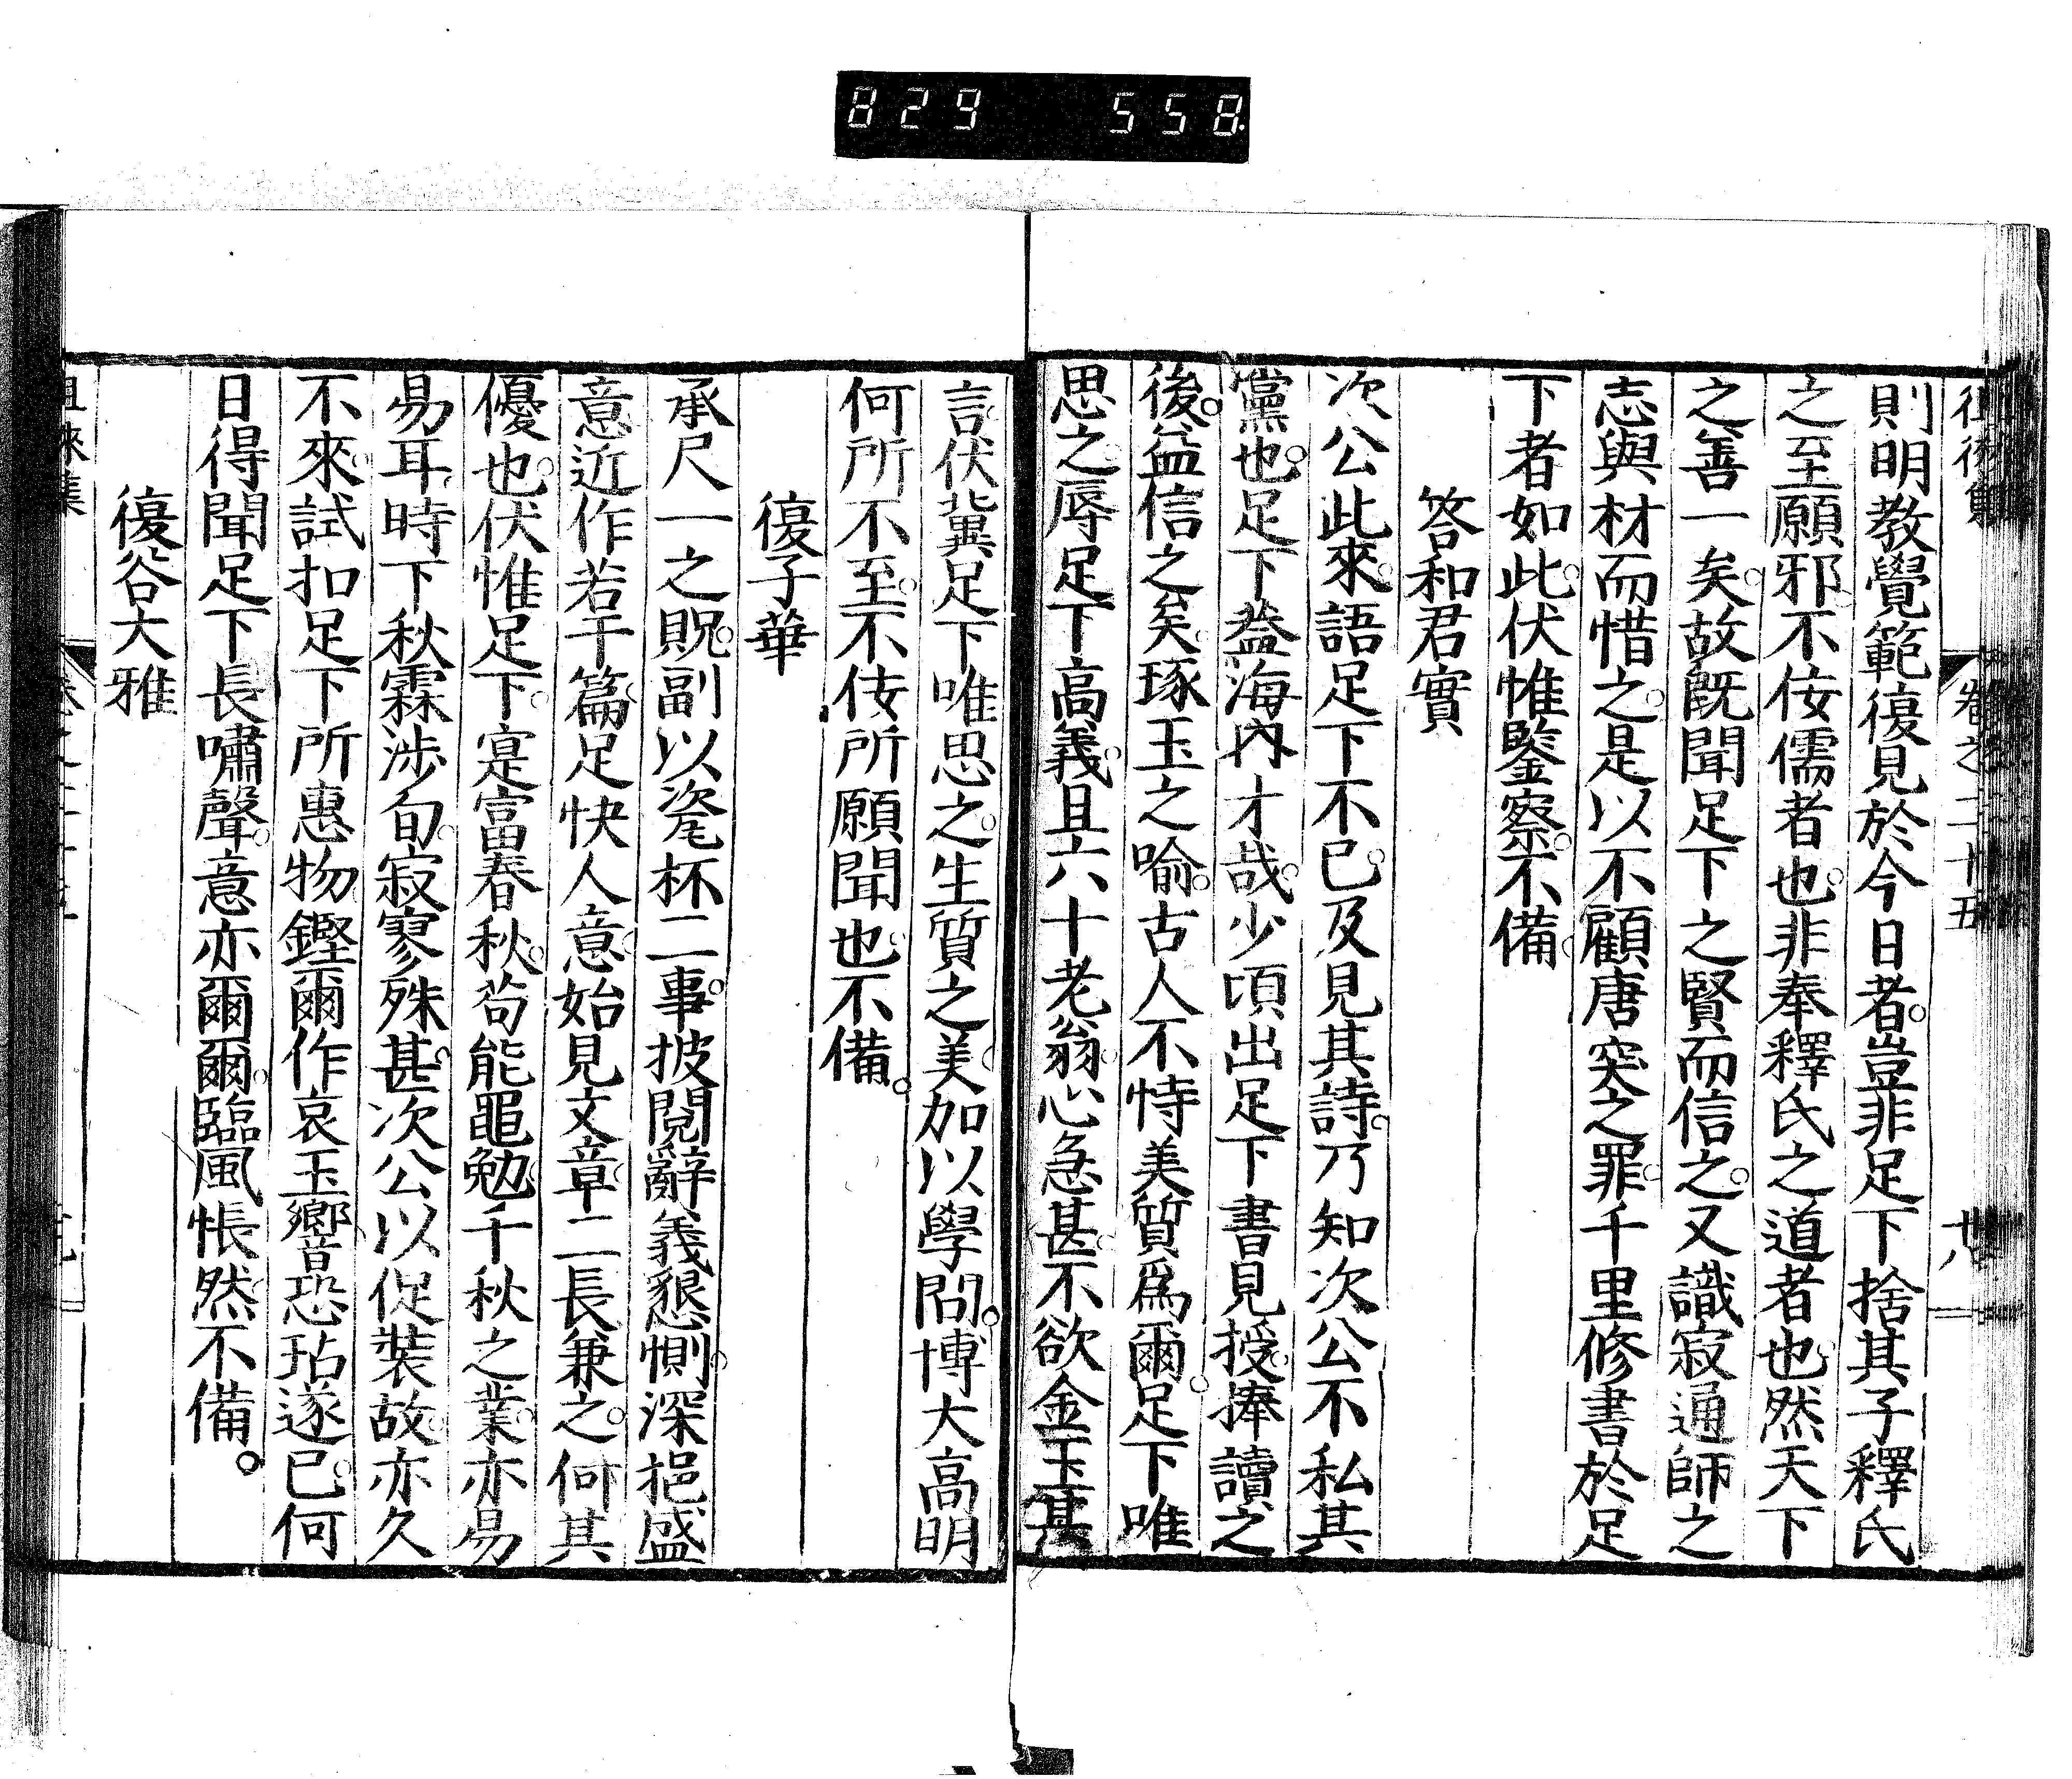 829 558
則明教覺範復見於今日者豈非足下捨其子釋氏
之至願邪不佞儒者也非奉釋氏之道者也然天下
之善一矣故既聞足下之賢而信之又識寂通師之
志與材而惜之是以不顧唐突之罪千里修書於足
下者如此伏惟鑒察不備
答和君實
次公此來語足下不已及見其詩乃知次公不私其
黨也足下益海內才哉少頃出足下書見授捧讀之
後益信之矣琢玉之喻古人不恃美質爲爾足下唯
思之辱足下高義且六十老翁心急甚不欲金玉其
言伏冀足下唯思之生質之美加以學問博大高明
何所不至不佞所願聞也不備
復子華
承尺一之貺副以瓷杯二事披閱辭義懇惻深挹盛
意近作若干篇足快人意始見文章二長兼之何其
優也伏惟足下寔富春秋苟能黽勉千秋之業亦易
易耳時下秋霖涉旬寂寥殊甚次公以促裝故亦久
不來試扣足下所惠物鏗爾作哀玉響恐玷遂已何
日得聞足下長嘯聲意亦爾爾臨風悵然不備
復谷大雅